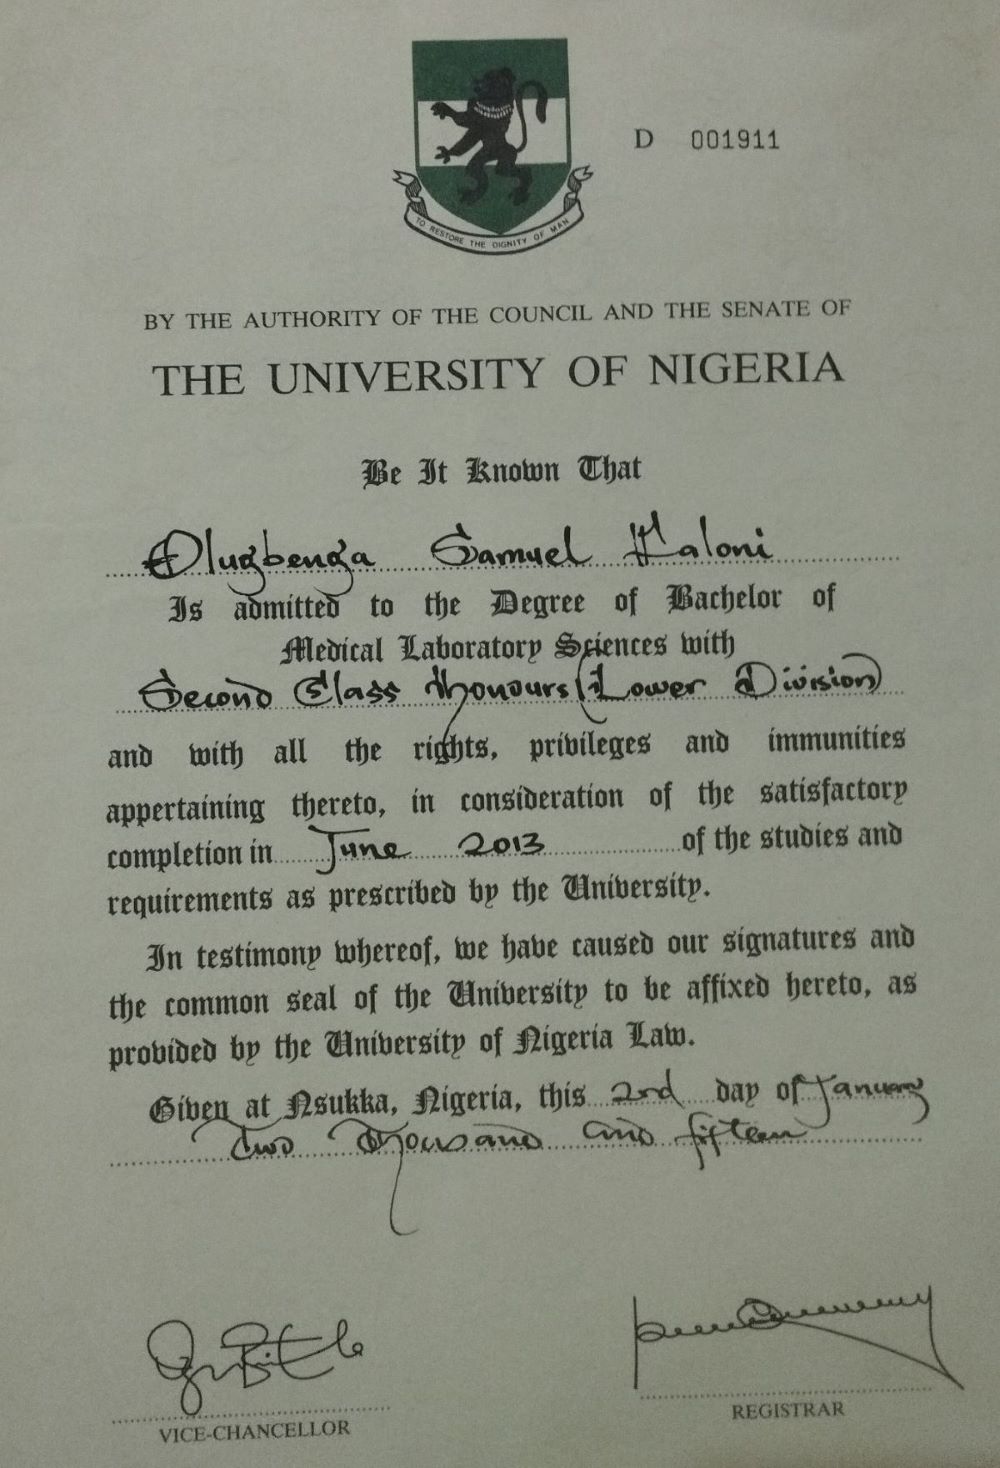 D 001911
TO RESTORE THE DIGNITY OF MAN
BY THE AUTHORITY OF THE COUNCIL AND THE SENATE OF
THE UNIVERSITY OF NIGERIA
Be It Known That
Olugbenga Samuel
Is admitted to the Degree of Bachelor of
Medical Laboratory Sciences with
Second Class Honours (Lower Division)
and with all the rights, privileges and immunities
appertaining thereto, in consideration of the satisfactory
completion in June 2013 of the studies and
requirements as prescribed by the University.
In testimony whereof, we have caused our signatures and
the common seal of the University to be affixed hereto, as
provided by the University of Nigeria Law.
Given at Nsukka, Nigeria, this 2nd day of January
Two Thousand and fifteen
VICE-CHANCELLOR
REGISTRAR